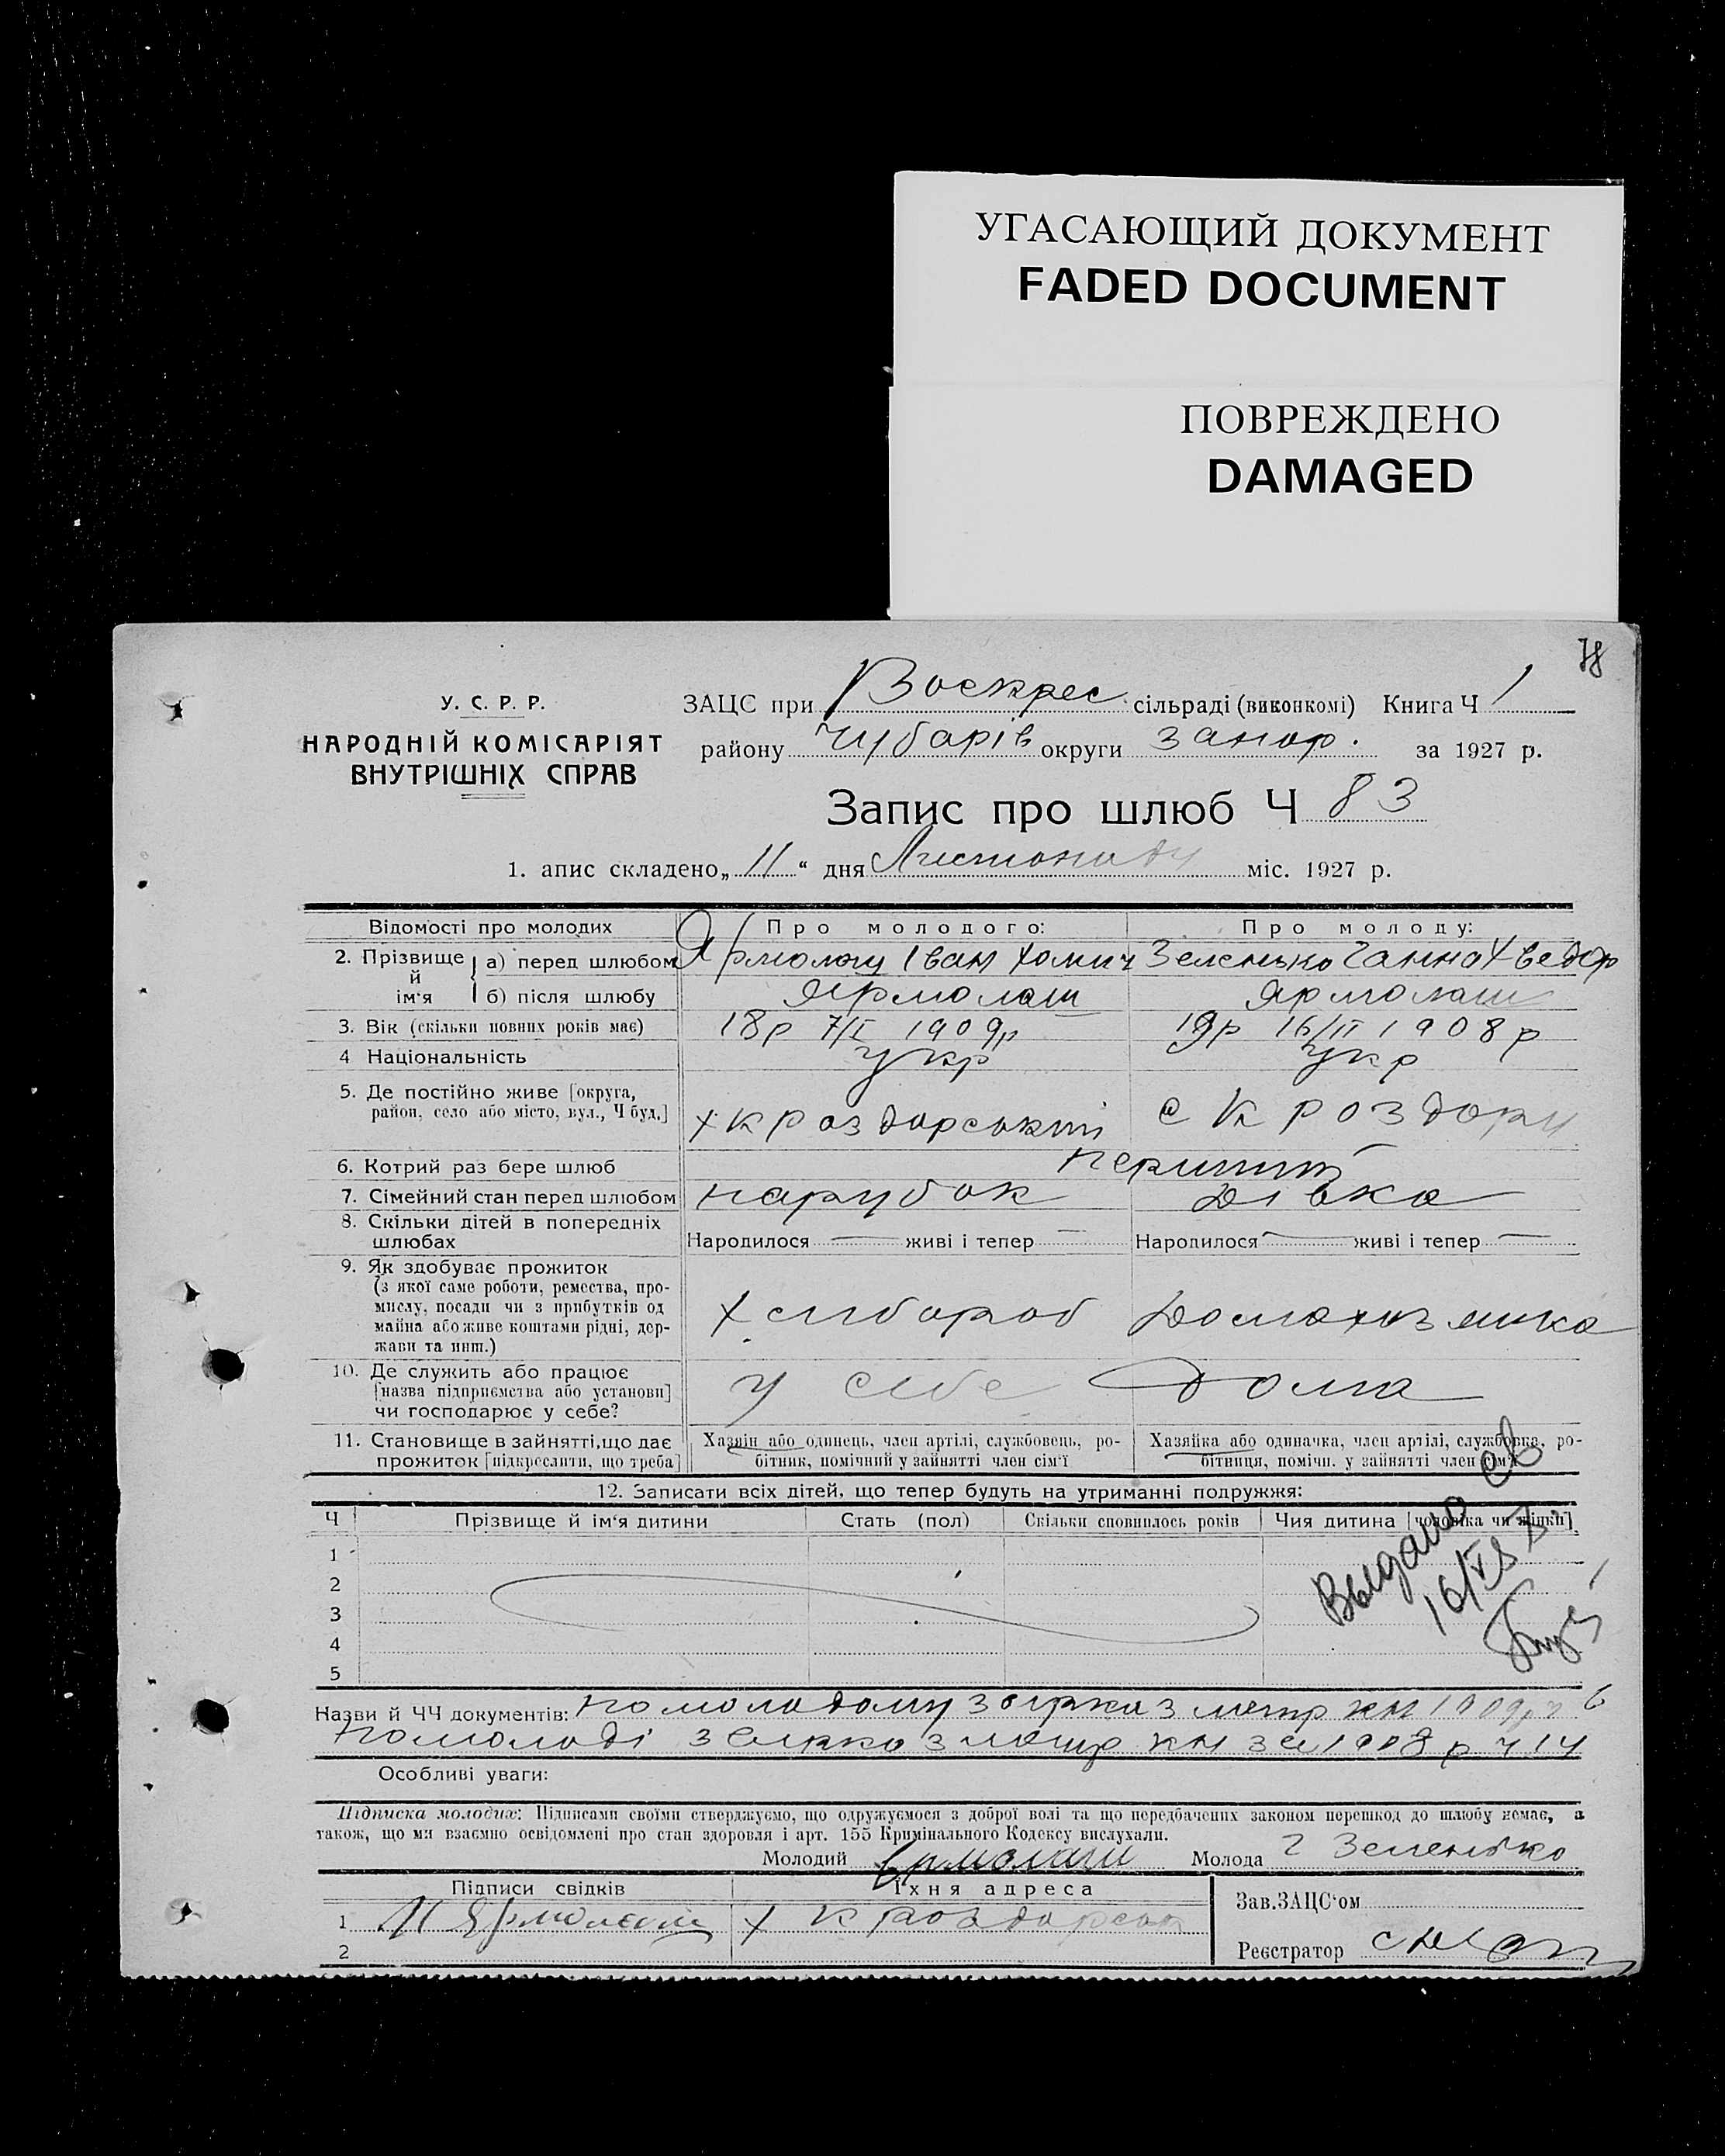 УГАСАЮЩИЙ ДОКУМЕНТ
FADED DOCUMENT
ПОВРЕЖДЕНО
DAMAGED
У. С. Р. Р.
НАРОДНІЙ КОМІСАРІЯТ
ВНУТРІШНІХ СПРАВ
ЗАЦС при Воскрес. сільраді (виконкомі) Книга Ч 1
району Чубарів округи Запор. за 1927 р.
Запис про шлюб Ч 83
1. апис складено „11“ дня Листопаду міс. 1927 р.
Відомості про молодих Про молодого: Про молоду:
2. Прізвище й ім‘я а) перед шлюбом Іван Хомич Зеленько Ганна Хведор
б) після шлюбу Ярмолаш Ярмолаш
3. Вік (скільки повних років має) 18р 7/I 1909р 19р 16/II 1908р
4 Національність укр укр
5. Де постійно живе [округа, район, село або місто, вул., Ч буд.] х К Роздорський с К Роздори
6. Котрий раз бере шлюб перший
7. Сімейний стан перед шлюбом парубок дівка
8. Скільки дітей в попередніх шлюбах Народилося — живі і тепер — Народилося — живі і тепер —
9. Як здобуває прожиток
(з якої саме роботи, ремества, промислу, посади чи з прибутків од майна або живе коштами рідні, держави та инш.) Хлибороб
10. Де служить або працює [назва підприємства або установи] чи господарює у себе? у себе дома
11. Становище в зайнятті, що дає прожиток [підкреслити, що треба] Хазяїн або одинець, член артілі, службовець, робітник, помічний у зайнятті член сім‘ї Хазяйка або одиначка, член артілі, службовка, робітниця, помічн. у зайнятті член сім‘ї
12. Записати всіх дітей, що тепер будуть на утриманні подружжя:
Ч Прізвище й ім‘я дитини Стать (пол) Скільки сповнилось років Чия дитина [чоловіка чи жінки]
1
2
3
4
5
Выдано св
Назви й ЧЧ документів: по молодому з метр кн 1909р
по молоді з метр кн за 1908 р ч 14
Особливі уваги:
Підписка молодих: Підписами своїми стверджуємо, що одружуємося з доброї волі та що передбачених законом перешкод до шлюбу немає, а
також, що ми взаємно освідомлені про стан здоровля і арт. 155 Кримінального Кодексу вислухали.
Молодий Молода Г Зеленько
Підписи свідків Їхня адреса
1 х К Роздорськ
2
Зав.ЗАЦС‘ом
Реєстратор